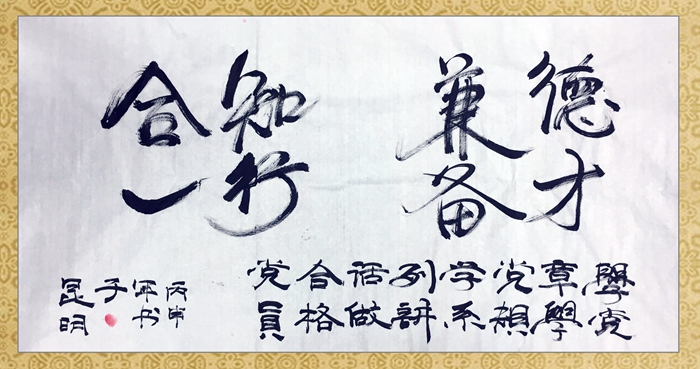 德才
兼备
知行
合一
學党
章學
党規
学系
列講
话做
合格
党員
丙申
年书
于
昆明